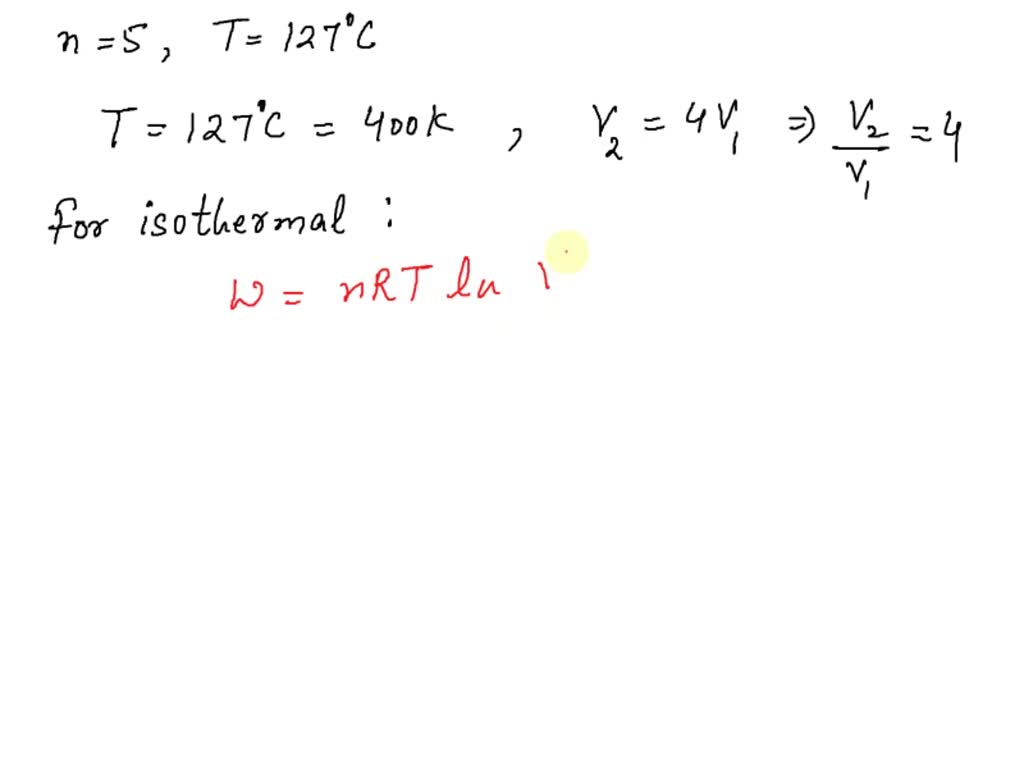 n = 5, T = 127°C
T = 127°C = 400k, V₂ = 4V₁ ⇒ V₂/V₁ = 4
for isothermal :
W = nRT ln